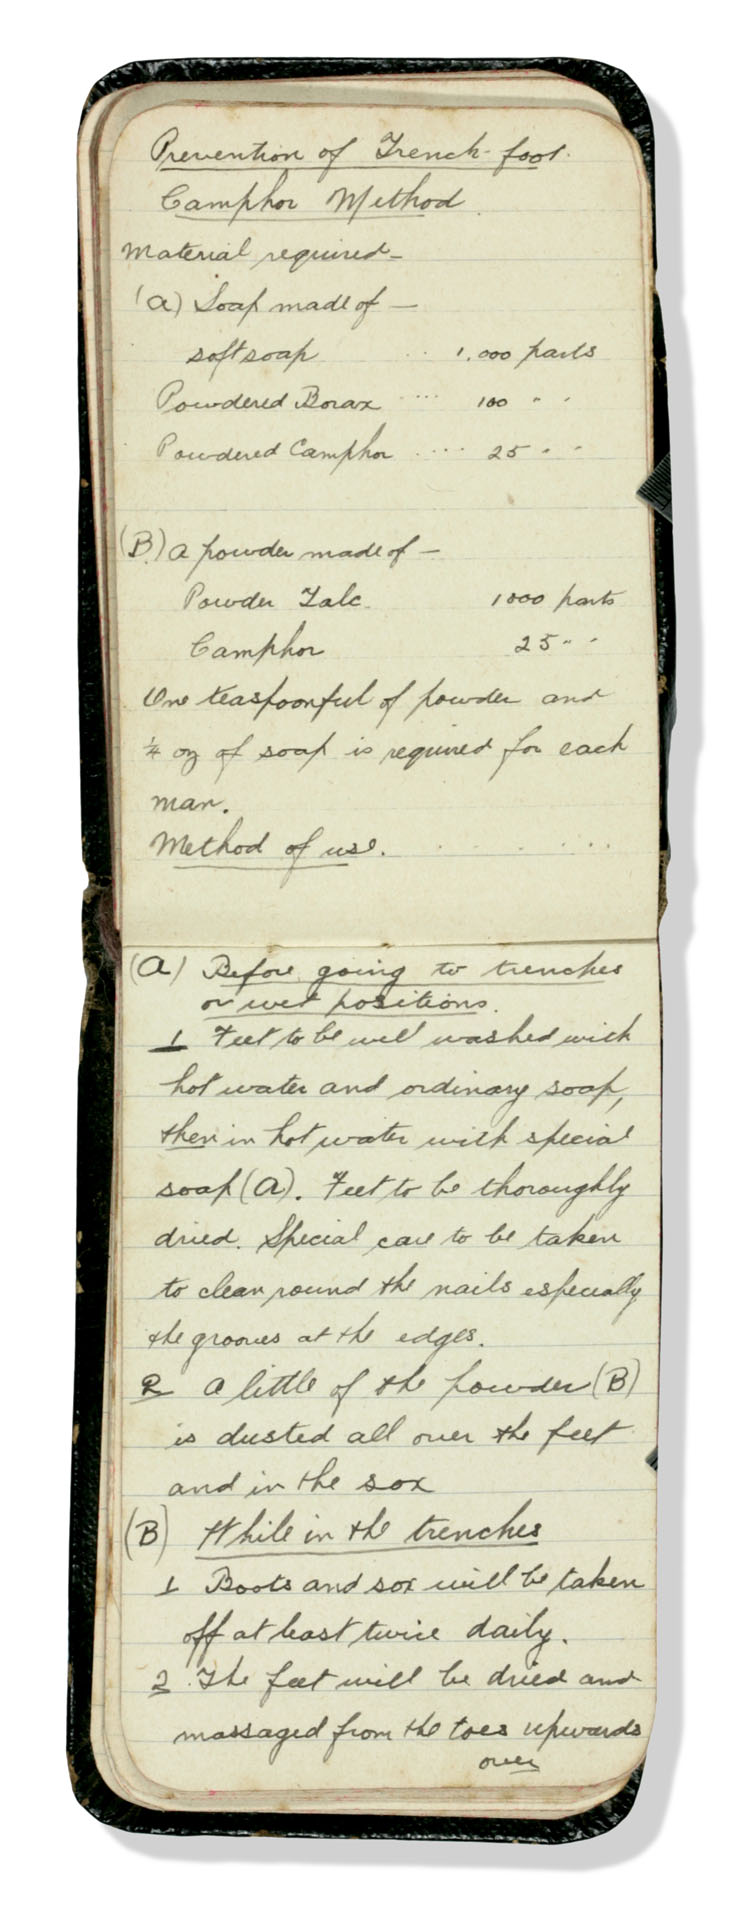 Prevention of Trench-foot.
Camphor Method.
Material required—
(a) Soap made of —
soft soap .. 1,000 parts
Powdered Borax .... 100 " "
Powdered Camphor .... 25 " "
(B) A powder made of —
Powder Talc. 1000 parts
Camphor 25 " "
One teaspoonful of powder and
¼ oz of soap is required for each
man.
Method of use. . . . . .
(A) Before going to trenches
or wet positions.
1 Feet to be well washed with
hot water and ordinary soap,
then in hot water with special
soap (A). Feet to be thoroughly
dried. Special care to be taken
to clean round the nails especially
the grooves at the edges.
2 A little of the powder (B)
is dusted all over the feet
and in the sox
(B) While in the trenches
1 Boots and sox will be taken
off at least twice daily.
2 The feet will be dried and
massaged from the toes upwards
over